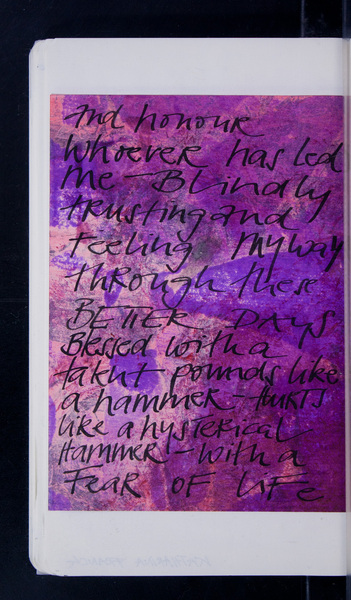 And honour
whoever has led
me – Blindly
trusting and
Feeling my way
through these
BETTER DAYS
Blessed with a
talent pounds like
a hammer – HURTS
like a hysterical
HAMMER – with a
FEAR OF LIFE